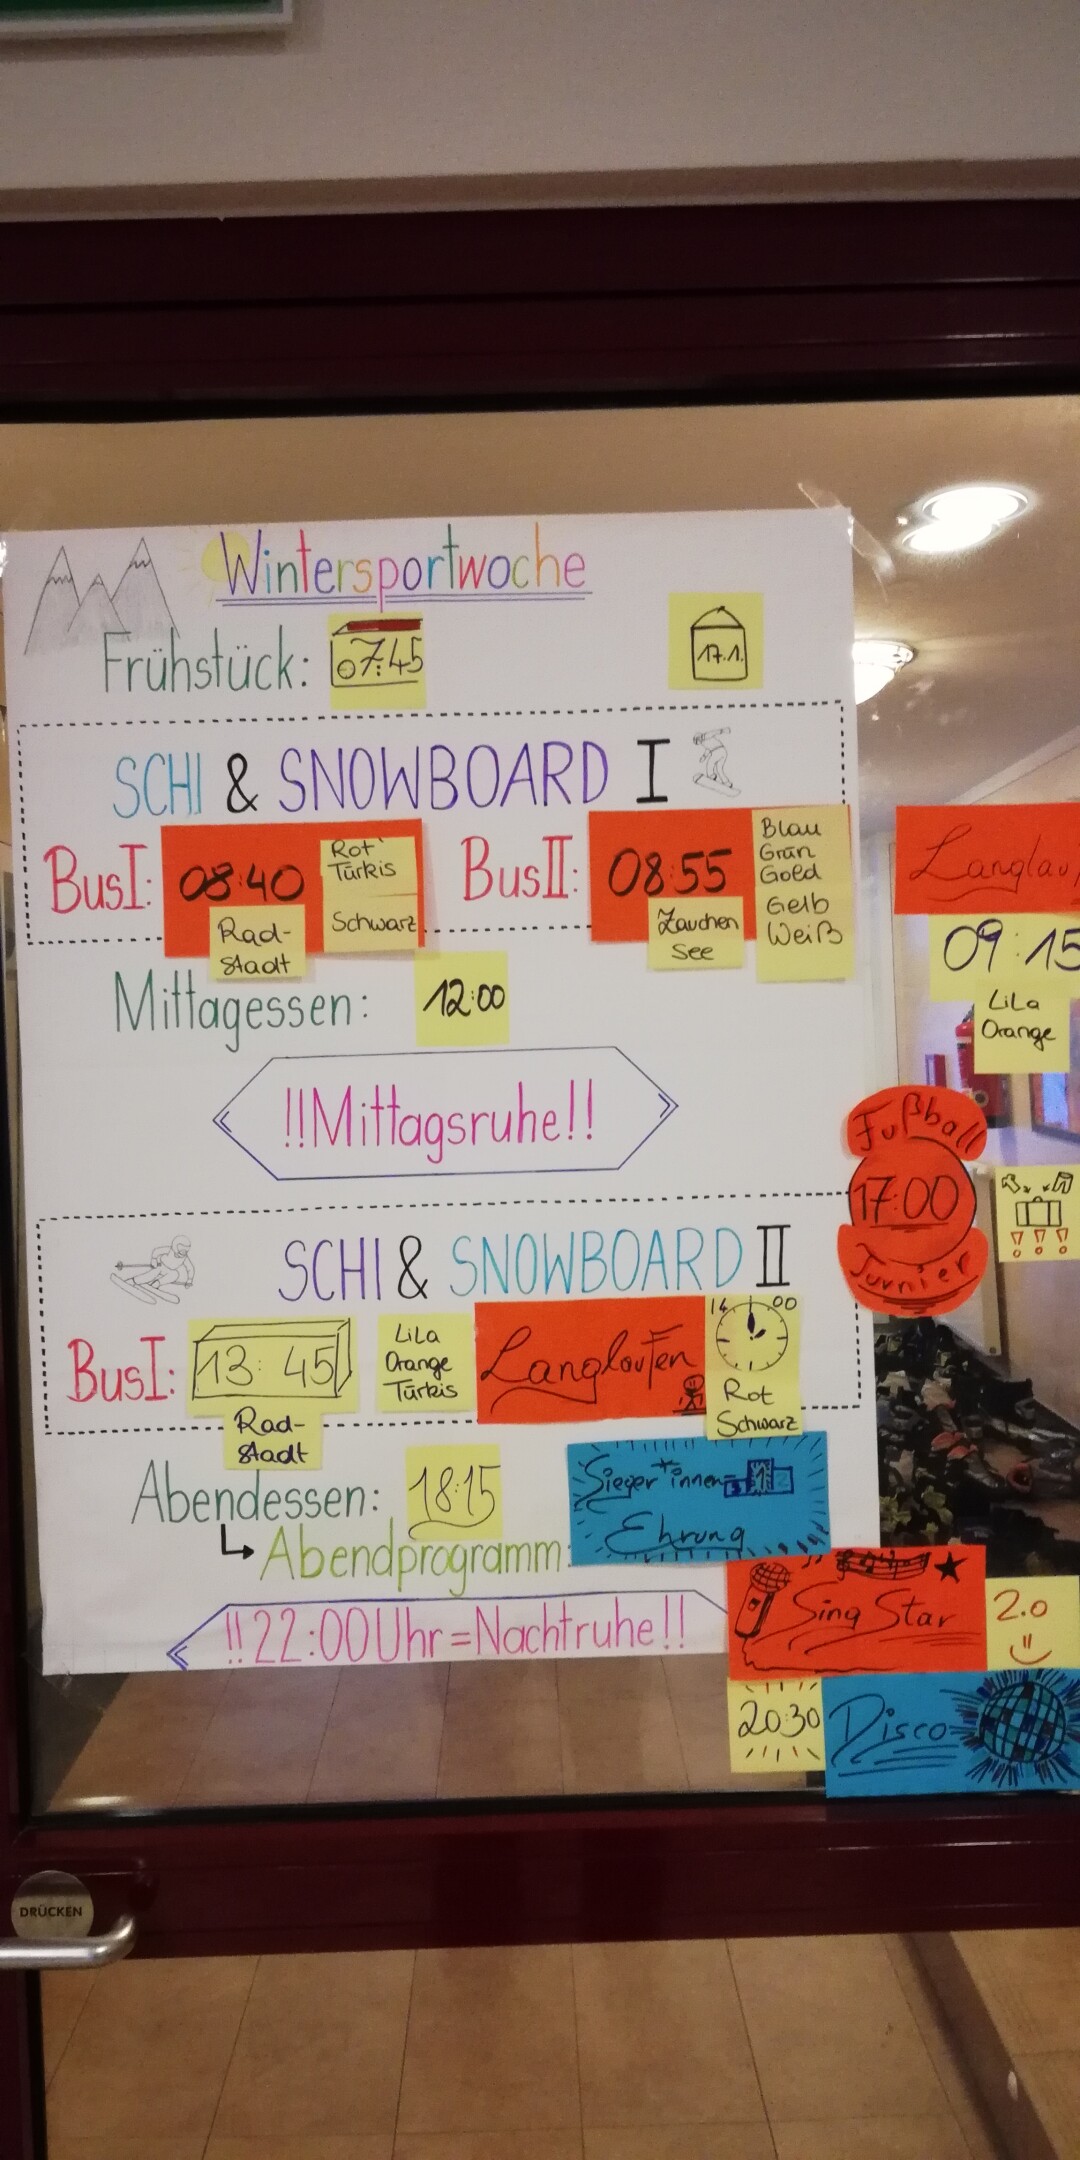 Wintersportwoche
Frühstück: 07:45
17.1.
SCHI & SNOWBOARD I
BusI: 08:40
Rot
Türkis
Schwarz
Rad-
stadt
BusII: 08:55
Zauchen
see
Blau
Grün
Gold
Gelb
Weiß
Langlau
09:15
LiLa
Orange
Mittagessen: 12:00
!!Mittagsruhe!!
Fußball
17:00
Turnier
!!!
SCHI & SNOWBOARD II
BusI: 13:45
Rad-
stadt
LiLa
Orange
Türkis
Langlaufen
14 00
Rot
Schwarz
Abendessen: 18:15
Abendprogramm:
Sieger*innen=
3 1 2
Ehrung
Sing Star
2.0
20:30
Disco
!!22:00Uhr=Nachtruhe!!
DRÜCKEN